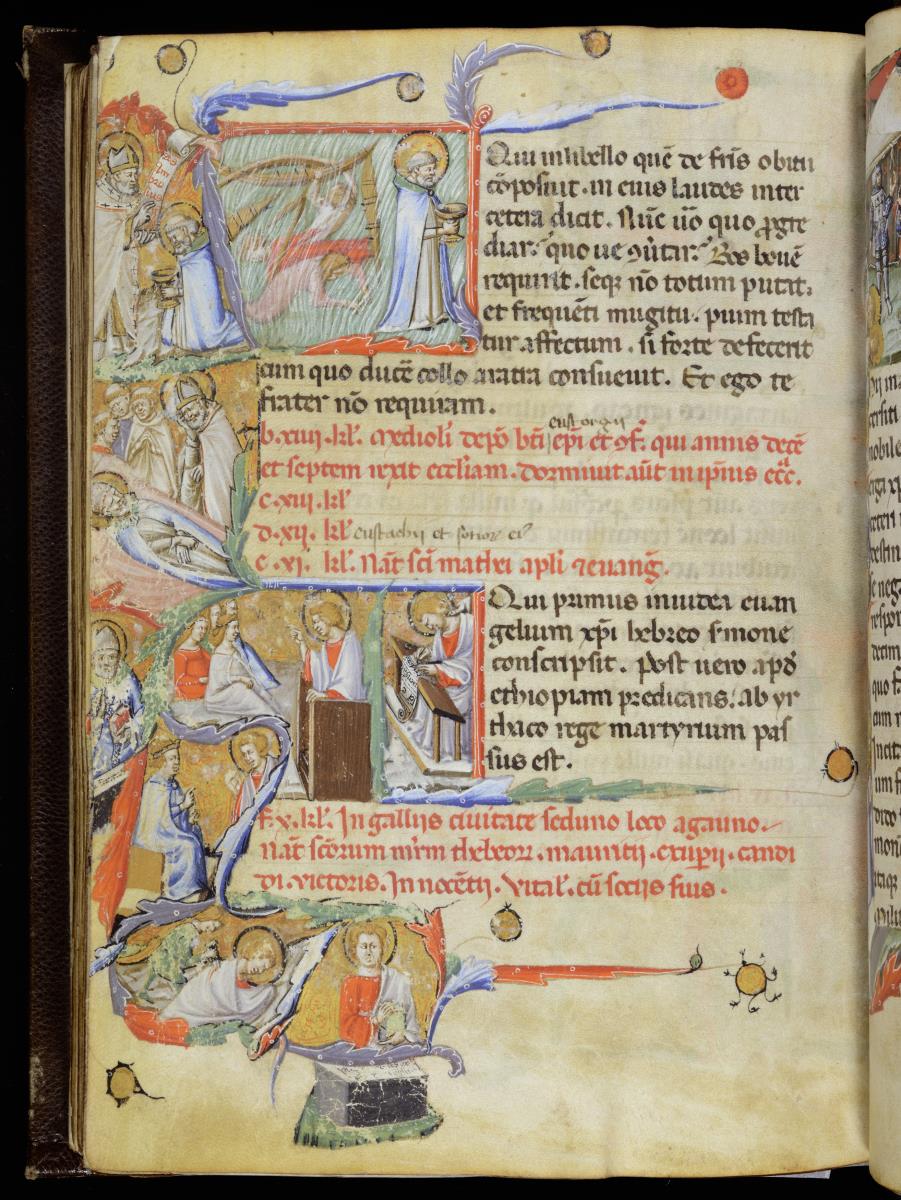 Qui in libello quē de fr̄is obitu
cōposuit. in eius laudes inter
cetera dicit. Nūc ūo quo ꝓgre
diar. quo ue ꝯūtar. Bos bouē
requirit. seqꝫ nō totum putat.
et frequēti mugitu. pium testa
tur affectum. si forte defecerit
cum quo ducē collo aratra consueuit. Et ego te
frater nō requiram.
eustorgii
b. xiiii. kl̄. Medioli̅ depō bt̄i ep̄i et ꝯf̄. qui annis decē
et septem rexit eccl̄iam. dormiuit aūt in ip̄ius ecc̄a.
c. xiii. kl̄
d. xii. kl̄ eustachij et sotior ei
e. xi. kl̄. Nat̄ sc̄i mathei apl̄i ⁊ euanḡ.
Qui primus in iudea euan
gelium xp̄i hebreo s̄mone
conscripsit. post uero apd̄
ethiopiam predicans. ab yr
thaco rege martyrium pas
sus est.
f. x. kl̄. In gallijs ciuitate seduno loco agauno.
Nat̄ sc̄orum mr̄m thebeorꝝ. mauritij. exuꝑij. candi
di. victoris. Innocētij. Vital̄. cū socijs suis.